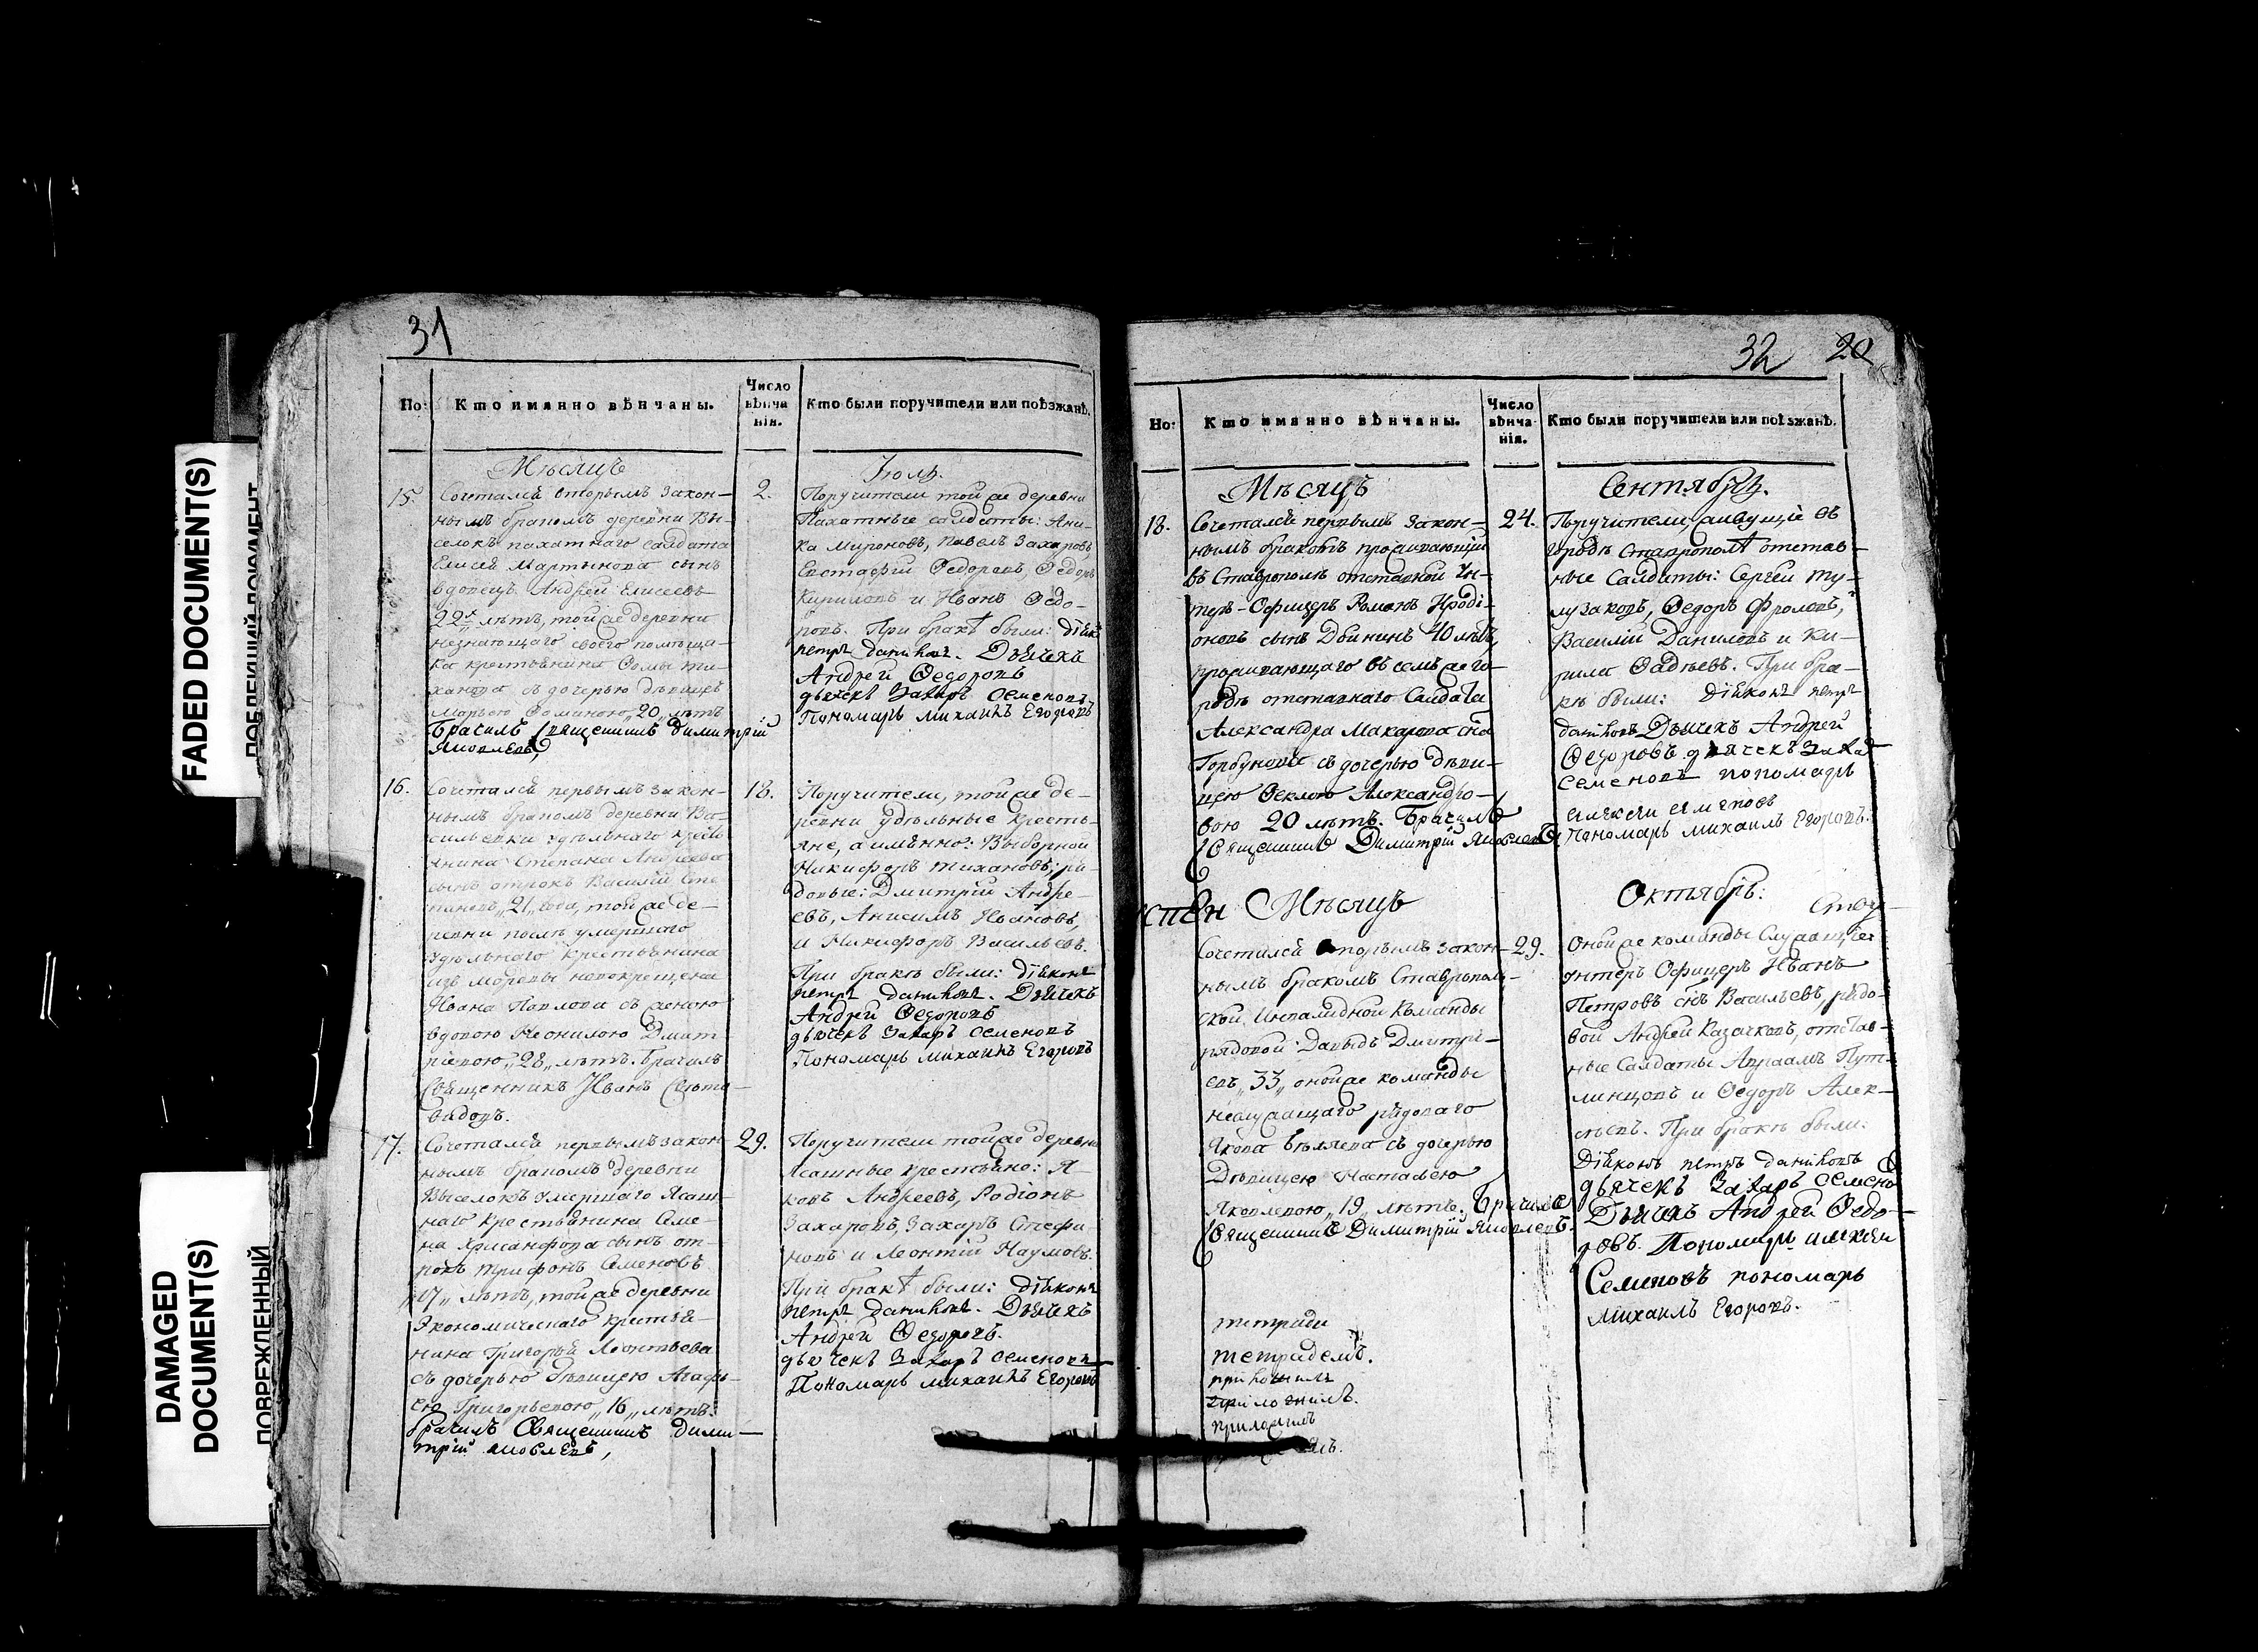 FADED DOCUMENT(S)
DAMAGED
DOCUMENT(S)
ПОВРЕЖДЕННЫЙ
31
Но:
Кто имянно вѣнчаны.
Число
вѣнча
нія.
Кто были поручители или поѣзжанѣ.
Мѣсяцъ
Іюль.
15.
Сочетался вторымъ закон-
нымъ бракомъ деревни Вы-
селокъ пахатнаго салдата
Елисея Мартынова сынъ
вдовецъ Андрей Елисеевъ
22х лѣтъ, той же деревни
незнающаго своего помѣщи-
ка крестьянина Фомы Ти-
ханова съ дочерью дѣвицею
Марьею Фоминою „20„ лѣтъ
Бра­чилъ Священникъ Димитрій
Яковлевъ,
2.
Поручители той же деревни
Пахатные салдаты: Ани-
ка Мироновъ, Павелъ Захаровъ,
Евстафій Федоровъ, Федоръ
Кириловъ и Иванъ Федо-
ровъ. При бракѣ были: діяконъ
петръ даниловъ. Дьячекъ
Андрей Федоровъ
дьячекъ Захаръ Семеновъ
Пономарь михаилъ Егоровъ
16.
Сочетался первымъ закон-
нымъ бракомъ деревни Ва-
сильевки удѣльнаго кресть
янина Степана Андреева
сынъ отрокъ Василій Сте
пановъ „21„ года, той же де-
ревни послѣ умершаго
удѣльнаго крестьянина
изъ мордвы новокрещена
Ивана Павлова съ женою
вдовою Неонилою Дмит
ріевою „28„ лѣтъ. Брачилъ
Священникъ Иванъ
18.
Поручители, той же де-
ревни удѣльные кресть-
яне, а имѣнно: Выборной
Никифоръ Тихановъ; ря-
довые: Дмитрій Андре-
евъ, Анисимъ Ивановъ,
и Никифоръ Васильевъ.
При бракѣ были: діяконъ
петръ даниловъ. Дьячекъ
Андрей Федоровъ
дьячекъ Захаръ Семеновъ
Пономарь михаилъ Егоровъ
17.
Сочетался первымъ закон
нымъ бракомъ деревни
Выселокъ умершаго Ясаш-
наго крестьянина Семе-
на Хрисанфова сынъ от-
рокъ Трифонъ Семеновъ
„17„ лѣтъ, той же деревни
Экономическаго крестья-
нина Григорья Леонтьева
съ дочерью дѣвицею Агафь-
ею Григорьевою „16„ лѣтъ.
Брачилъ Священникъ дими-
трій яковлевъ,
29.
Поручители той же деревни
Ясашные крестьяне: Я-
ковъ Андреевъ, Родіонъ
Захаровъ, Захаръ Стефа-
новъ и Леонтій Наумовъ.
При бракѣ были: діяконъ
петръ даниловъ. Дьячекъ
Андрей Федоровъ.
дьячекъ Захаръ Семеновъ
Пономарь михаилъ Егоровъ
32
20
Но:
Кто имянно вѣнчаны.
Число
вѣнча-
нія.
Кто были поручители или поѣзжанѣ.
Мѣсяцъ
Сентябрь.
18.
Сочетался первымъ закон-
нымъ бракомъ проживающій
въ Ставрополѣ отставной Ун-
теръ-Офицеръ Романъ Ироді-
оновъ сынъ Двининъ 40 лѣтъ,
проживающаго въ семъ же го-
родѣ отставнаго Салдата
Александра Макарова сна
Горбунова съ дочерью дѣви-
цею Феклою Александро-
вою 20 лѣтъ. Брачилъ
Священникъ Димитрій Яковлевъ,
24.
Поручители, живущіе въ
городѣ Ставрополѣ отстав-
ные Салдаты: Сергей Ту-
лузаковъ, Федоръ Фроловъ,
Василій Даниловъ и Ки-
рила Фадѣевъ. При бра-
кѣ были: діяконъ петръ
даниловъ Дьячекъ Андрей
Федоровъ дьячекъ Захар
Семеновъ пономарь
алексѣй семеновъ
Пономарь михаилъ Егоровъ.
Мѣсяцъ
Октябрь:
Сочетался вторымъ закон-
нымъ бракомъ Ставрополь-
ской Инвалидной Команды
рядовой Давыдъ Дмитрі-
евъ „33„ оной же команды
неслужащаго рядоваго
Якова Бѣляева съ дочерью
Дѣвицею Настасьею
Яковлевою „19„ лѣтъ. Брачилъ
Священникъ Димитрій Яковлевъ.
29.
Оной же команды Служащіе
унтеръ Офицеръ Иванъ
Петровъ снъ Васильевъ, рядо-
вой Андрей Казачковъ, отстав-
ные Салдаты Авраамъ Пут-
линцовъ и Федоръ Алек-
сѣевъ. При бракѣ были:
Діяконъ петръ даниловъ
дьячекъ Захаръ Семено
Дьячекъ Андрей Федо-
ровъ. Пономарь алексѣй
Семеновъ пономарь
михаилъ Егоровъ.
тетради
тетрадемъ.
приложилъ